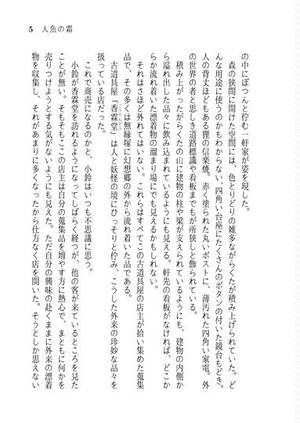 5　人魚の霜
の中にぽつんと佇む一軒家が姿を現した。
森の狭間に開けた空間には、色とりどりの雑多ながらくたが積み上げられていた。ど
んな用途に使うのかもわからない、四角い台座にたくさんのボタンの付いた鏡台もどき。
人の背丈ほどもある狸の信楽焼。赤く塗られた丸いポストに、薄汚れた四角い家電。外
の世界の者と思しき道路標識や看板までもが所狭しと飾られている。
積み上がったがらくたの山に建物の柱や梁が支えられているようにも、建物の内側か
ら溢れ出いた品々に飲み込まれているようにも見える。軒先の看板がなければ、どこか
から流れ着いた漂着物の溜まり場にでも見えるかもしれない。
それはさほど外れてはいない。これらはすべてこの古道具屋の店主が拾い集めた蒐集
品で、その多くは無縁塚に幻想郷の外から流れ着いた品である。
古道具屋「香霖堂」は人と妖怪の境にひっそりと佇み、こうした外来の珍妙な品々を
扱っている店だった。
これで商売になるのか、小鈴はいつも不思議に思う。
小鈴が香霖堂を訪れるようになってしばらく経つが、他の客が来ているところを見た
ことが無い。そもそもここの店主は自分の蒐集品を増やす方に熱心で、まともに何かを
売りつけようとする気がないようにも見えた。ただ自分の興味の赴くままに外来の漂着
物を収集し、それがあまりに多くなったから仕方なく店を開いた。そうとしか思えない